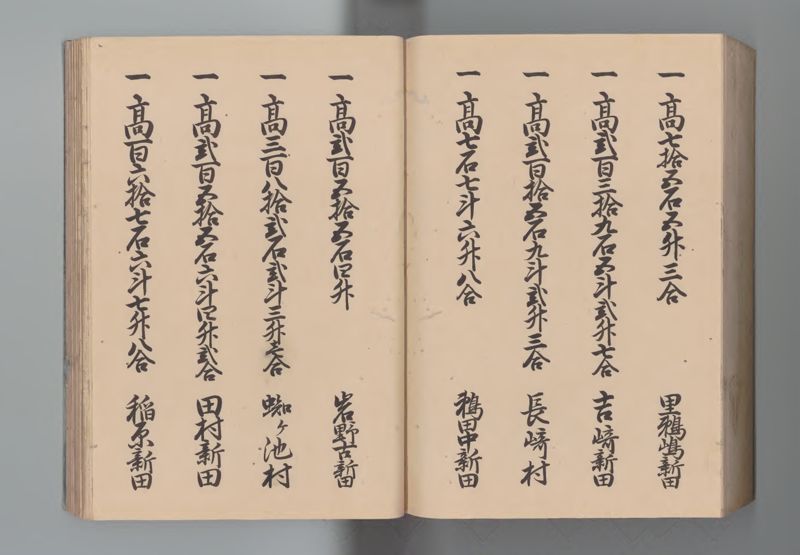 一 高七拾五石五升三合 里鵜嶋新田
一 高弐百三拾九石五斗弐升七合 吉﨑新田
一 高弐百拾五石九斗弐升三合 長﨑村
一 高七石七斗六升八合 鵜田中新田
一 高弐百五拾五石四升 岩野古新田
一 高三百八拾弐石弐斗三升壱合 蜘ヶ池村
一 高弐百五拾五石六斗四升弐合 田村新田
一 高百六拾七石六斗七升八合 稲原新田